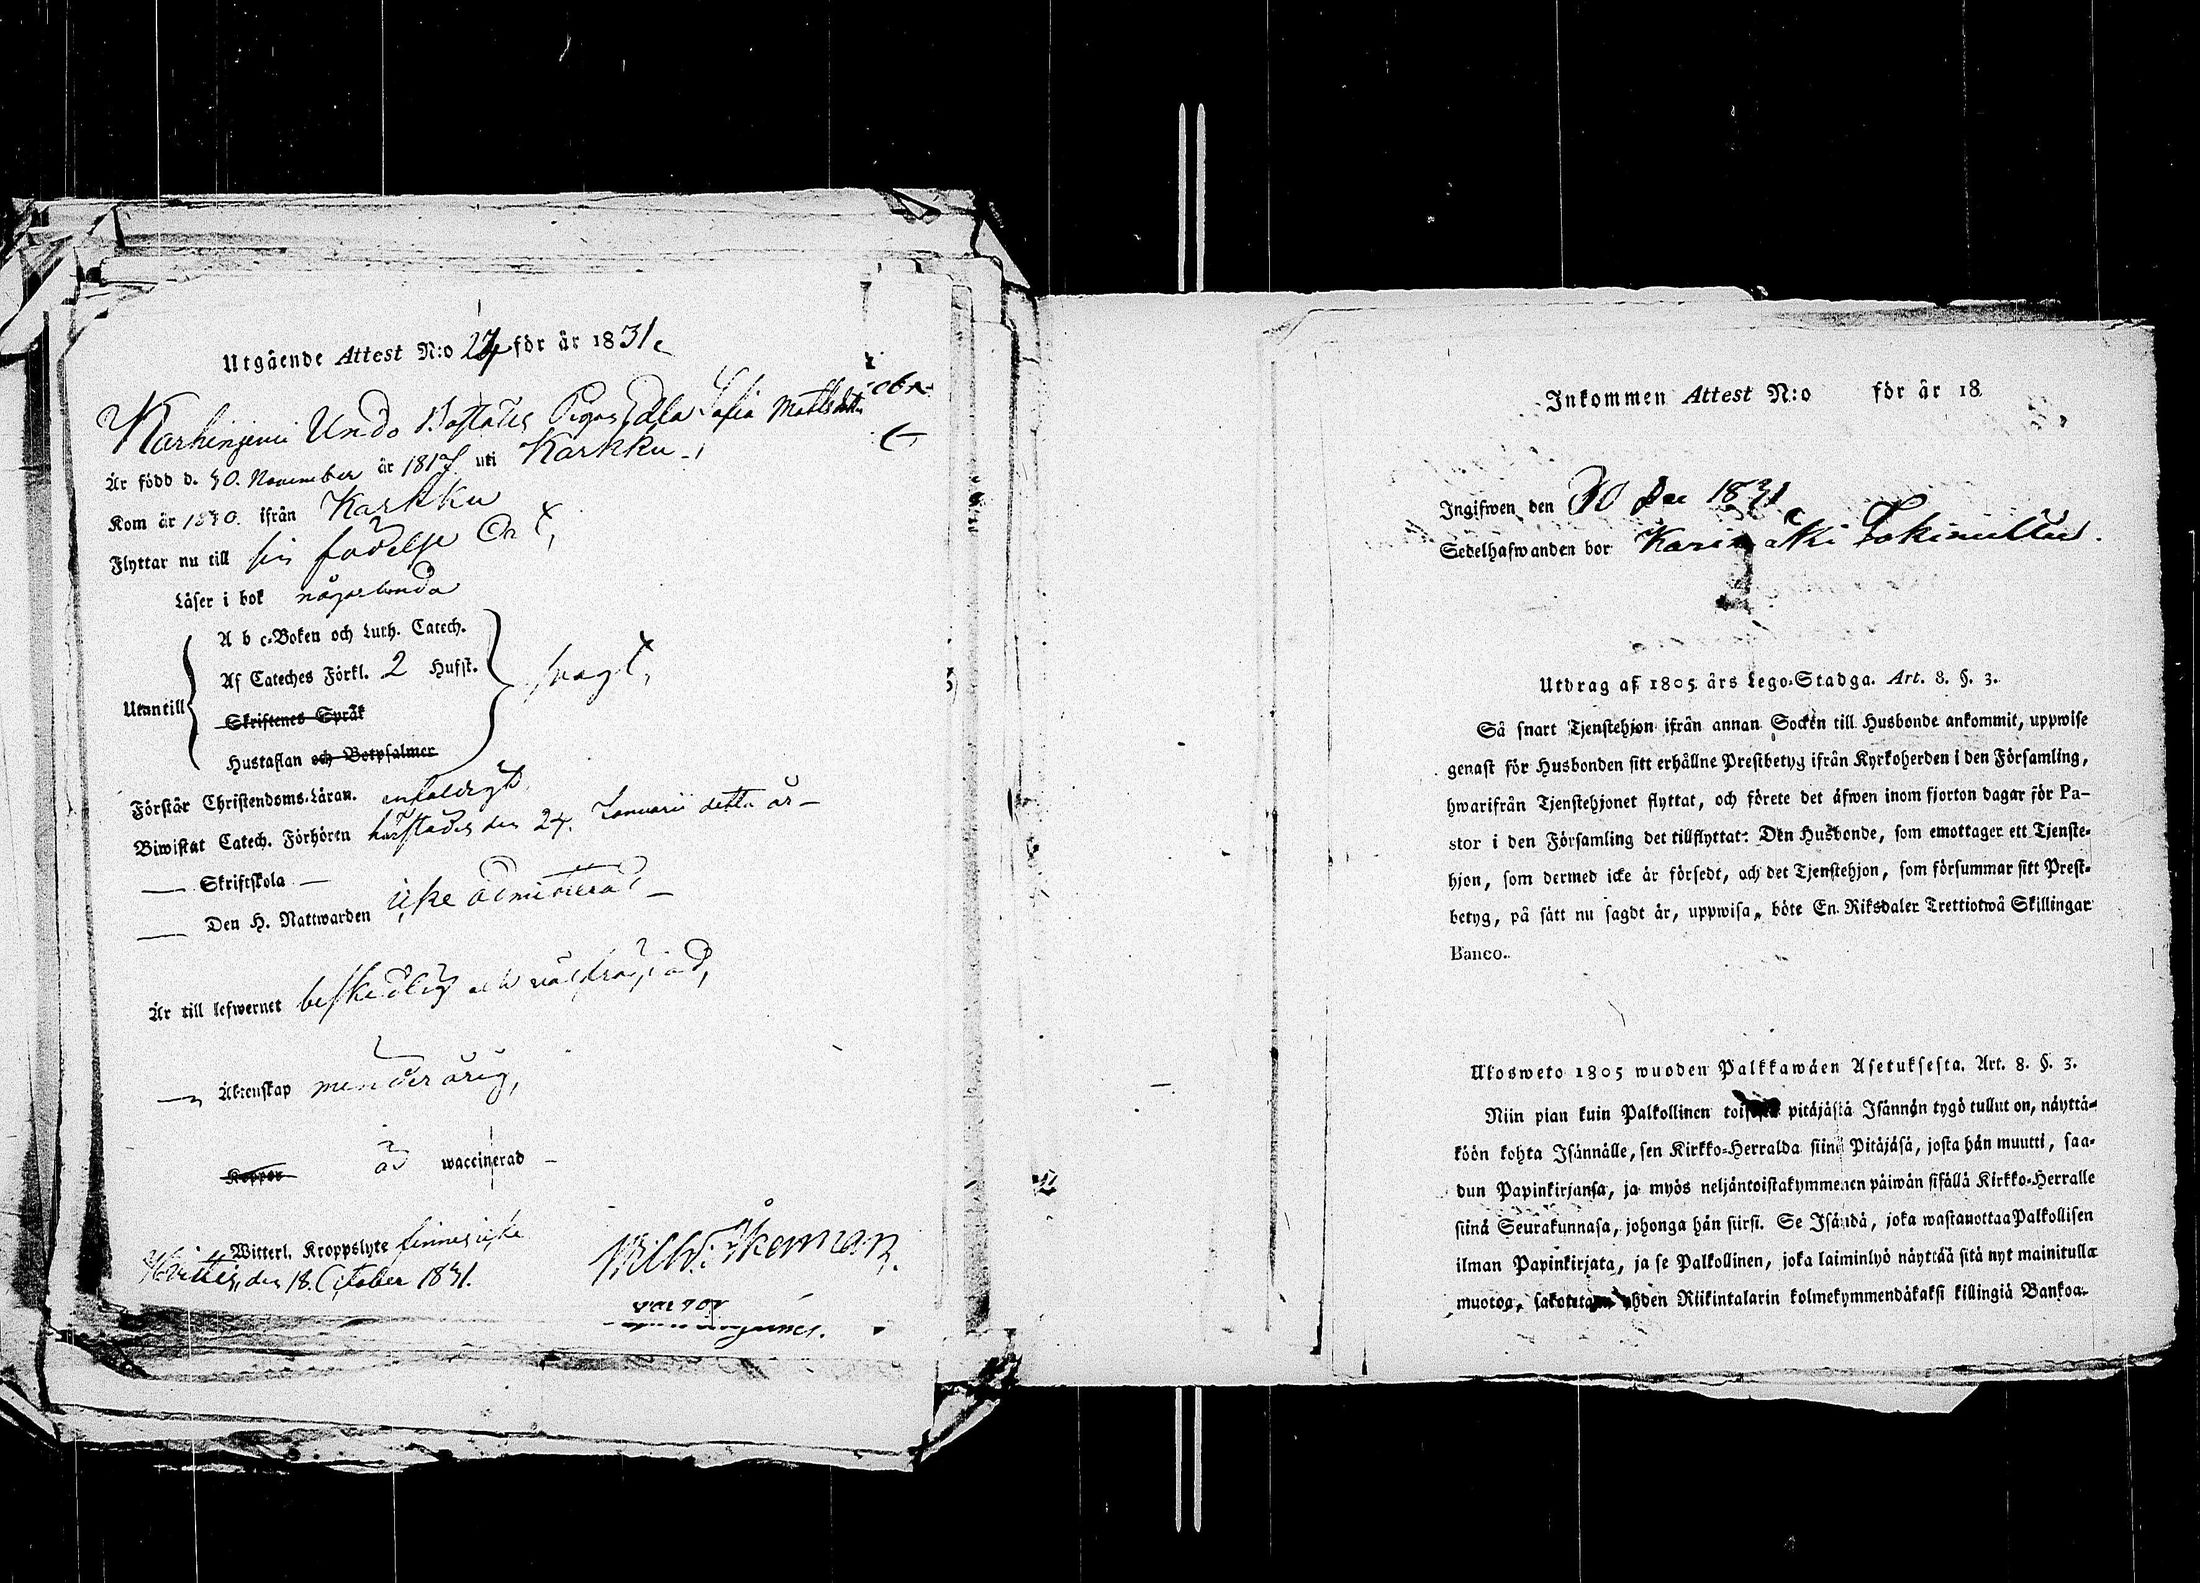 Utgående Attest N:o 24 för år 1831.
Karhinjemi Undo Bostades Pigan Edla Sofia Mattsdotter
Är född d. 30. November år 1817 uti Karkku
Kom år 1830. ifrån Karkku
Flyttar nu till sin födelse Ort,
Läser i bok någorlunda
A b c-Boken och Luth. Catech.
Af Cateches Förkl. 2 Hufst.
Utantill svagt,
Skriftenes Språk
Hustaflan och Botpsalmer
Förstår Christendoms-Läran. enfaldigt
Biwistat Catech. Förhören härstädes den 24. Januarii detta år –
— Skriftskola —
— Den H. Nattwarden icke admitterad –
Är till lefwernet beskedlig och välfräjdad,
— Äktenskap minderårig,
Koppor är waccinerad –
Witterl. Kroppslyte finnes icke
Hvittis, den 18. October 1831. Wilh. Åkerman.
Inkommen Attest N:o för år 18
Ingifwen den 30 Dec 1831
Sedelhafwanden bor
Utdrag af 1805 års Lego-Stadga. Art. 8. §. 3.
Så snart Tjenstehjon ifrån annan Socken till Husbonde ankommit, uppwise
genast för Husbonden sitt erhållne Prestbetyg ifrån Kyrkoherden i den Församling,
hwarifrån Tjenstehjonet flyttat, och förete det äfwen inom fjorton dagar för Pa-
stor i den Församling det tillflyttat: Den Husbonde, som emottager ett Tjenste-
hjon, som dermed icke är försedt, och det Tjenstehjon, som försummar sitt Prest-
betyg, på sätt nu sagdt är, uppwisa, böte En Riksdaler Trettiotwå Skillingar
Banco.
Ulosweto 1805 wuoden Palkkawäen Asetuksesta. Art. 8. §. 3.
Niin pian kuin Palkollinen toisesta pitäjästä Isännän tygö tullut on, näyttä-
köön kohta Isännälle, sen Kirkko-Herralda siinä Pitäjäsä, josta hän muutti, saa-
dun Papinkirjansa, ja myös neljäntoistakymmenen päiwän sisällä Kirkko-Herralle
siinä Seurakunnasa, johonga hän siirsi. Se Isändä, joka wastauottaa Palkollisen
ilman Papinkirjata, ja se Palkollinen, joka laiminlyö näyttää sitä nyt mainitulla
muotoa, sakotetaan yhden Riikintalarin kolmekymmendäkaksi killingiä Bankoa.